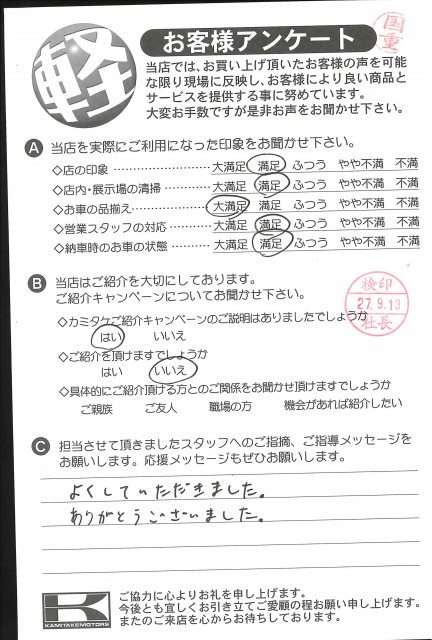 軽
お客様アンケート
国重
当店では、お買い上げ頂いたお客様の声を可能
な限り現場に反映し、お客様により良い商品と
サービスを提供する事に努めています。
大変お手数ですが是非お声をお聞かせ下さい。
A 当店を実際にご利用になった印象をお聞かせ下さい。
◇店の印象 ……………… 大満足 満足 ふつう やや不満 不満
◇店内・展示場の清掃 ………… 大満足 満足 ふつう やや不満 不満
◇お車の品揃え ……………… 大満足 満足 ふつう やや不満 不満
◇営業スタッフの対応 ………… 大満足 満足 ふつう やや不満 不満
◇納車時のお車の状態 ………… 大満足 満足 ふつう やや不満 不満
B 当店はご紹介を大切にしております。
ご紹介キャンペーンについてお聞かせ下さい。
検印
27.9.13
社長
◇カミタケご紹介キャンペーンのご説明はありましたでしょうか
はい いいえ
◇ご紹介を頂けますでしょうか
はい いいえ
◇具体的にご紹介頂ける方とのご関係をお聞かせ頂けますでしょうか
ご親族 ご友人 職場の方 機会があれば紹介したい
C 担当させて頂きましたスタッフへのご指摘、ご指導メッセージを
お願いします。応援メッセージもぜひお願いします。
よくしていただきました。
ありがとうございました。
K
KAMITAKEMOTORS
ご協力に心よりお礼を申し上げます。
今後とも宜しくお引き立てご愛顧の程お願い申し上げます。
またのご来店を心からお待ちしております。